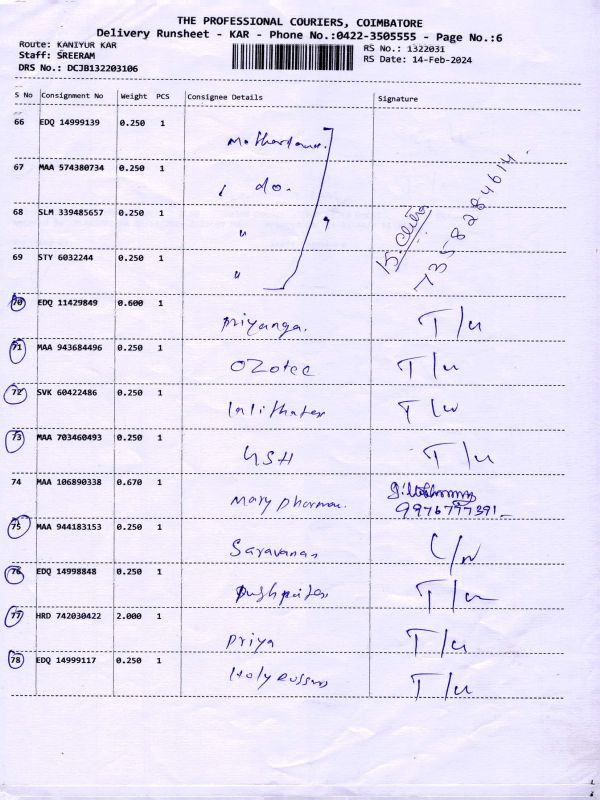 THE PROFESSIONAL COURIERS, COIMBATORE
Delivery Runsheet - KAR - Phone No.:0422-3505555 - Page No.:6
Route: KANIYUR KAR
RS No.: 1322031
Staff: SREERAM
RS Date: 14-Feb-2024
DRS No.: DCJB132203106
S No Consignment No Weight PCS Consignee Details Signature
66 EDQ 14999139 0.250 1
67 MAA 574380734 0.250 1 do.
68 SLM 339485657 0.250 1 "
69 STY 6032244 0.250 1 "
7358284614
70 EDQ 11429849 0.600 1 Priyanga. T/u
71 MAA 943684496 0.250 1 Ozotec T/u
72 SVK 60422486 0.250 1 T/u
73 MAA 703460493 0.250 1 USH T/u
74 MAA 106890338 0.670 1 Mary pharmac.
9976777391
75 MAA 944183153 0.250 1 Saravanan C/n
76 EDQ 14998848 0.250 1 T/u
77 HRD 742030422 2.000 1 Priya T/u
78 EDQ 14999117 0.250 1 Holy T/u